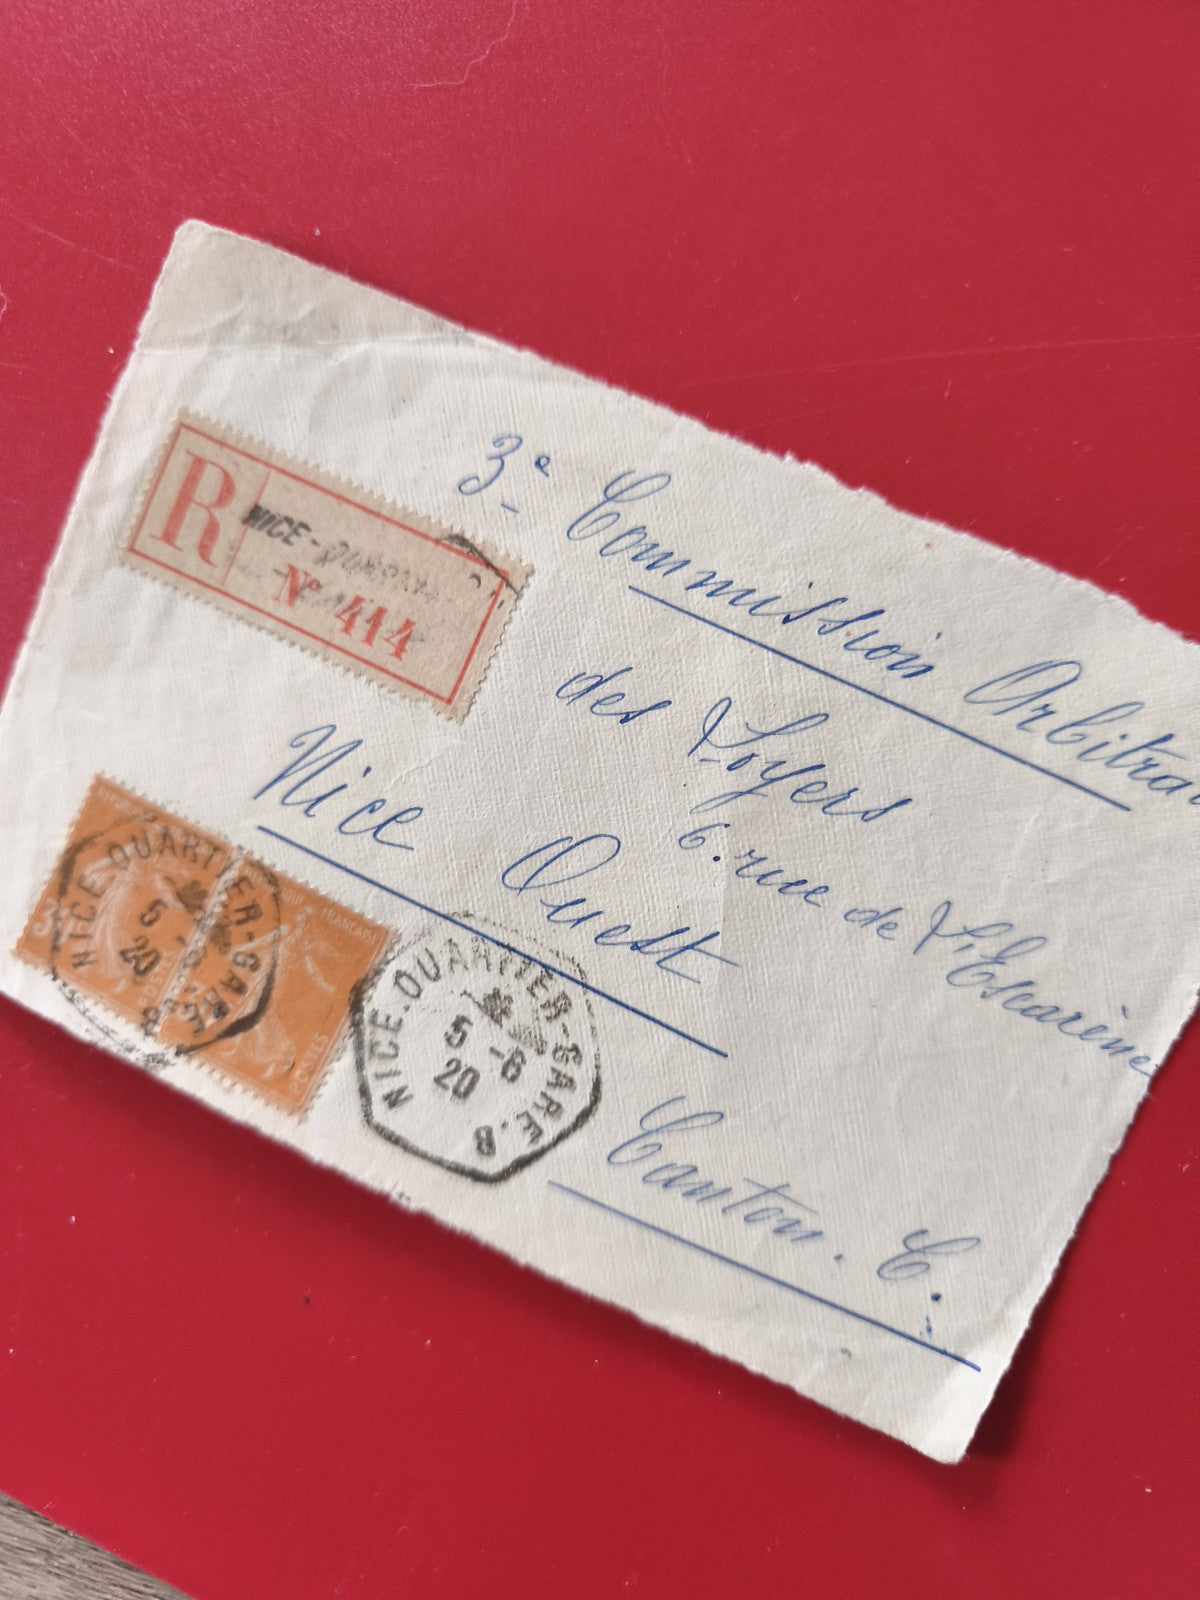 R
NICE-
N° 414
3e Commission Arbitra
des Loyers
6. rue de L'Escarène
Nice Ouest
Canton. C.
NICE. QUARTIER-GARE
5
20
FRANÇAISE
NICE. QUARTIER-GARE. B
5 -6
20